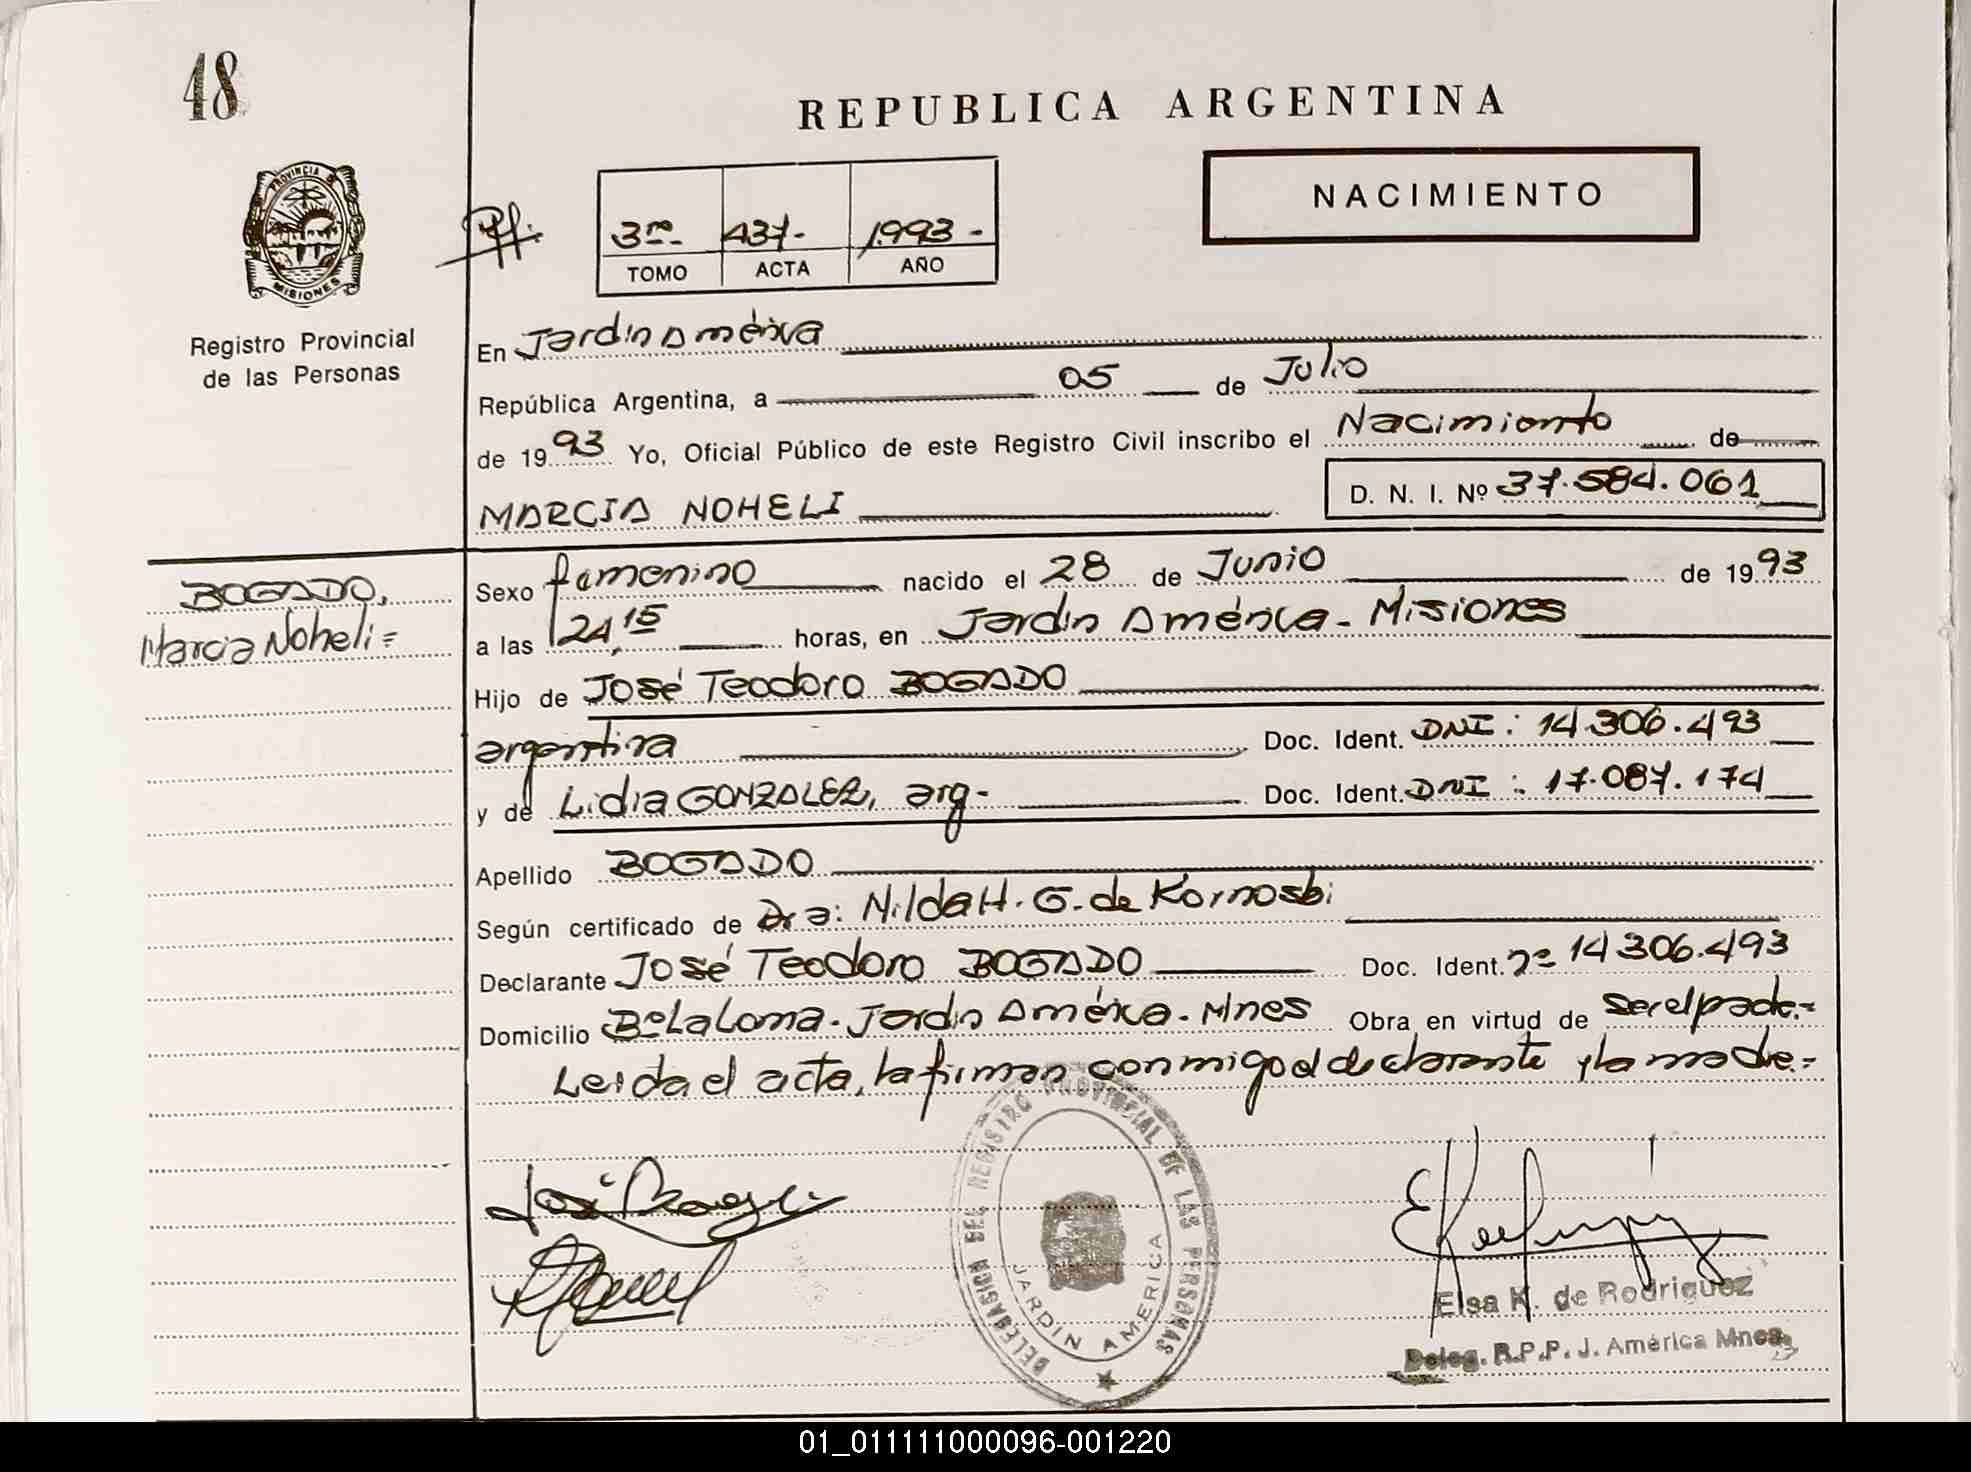 48
REPUBLICA ARGENTINA
PROVINCIA DE
MISIONES
NACIMIENTO
3ro- 437- 1993-
TOMO ACTA AÑO
Registro Provincial
de las Personas
En Jardin América
República Argentina, a 05 de Julio
de 1993 Yo, Oficial Público de este Registro Civil inscribo el Nacimiento de
MARCIA NOHELI
D. N. I. Nº 37.584.061
BOGADO,
Marcia Noheli=
Sexo femenino nacido el 28 de Junio de 1993
a las 24,15 horas, en Jardin América - Misiones
Hijo de José Teodoro BOGADO
argentina Doc. Ident. DNI: 14.306.493
y de Lidia GONZALEZ, arg- Doc. Ident. DNI: 17.087.174
Apellido BOGADO
Según certificado de Dra: Nilda H. G. de
Declarante José Teodoro BOGADO Doc. Ident. nº 14306.493
Domicilio Bº La Loma. Jardin América. Mnes Obra en virtud de ser el padre.=
Leida el acta, la firman conmigo el declarante y la madre.=
DELEGACION DEL REGISTRO PROVINCIAL DE LAS PERSONAS
JARDIN AMERICA
Elsa K. de Rodriguez
Deleg. R.P.P. J. América Mnes.
01_011111000096-001220